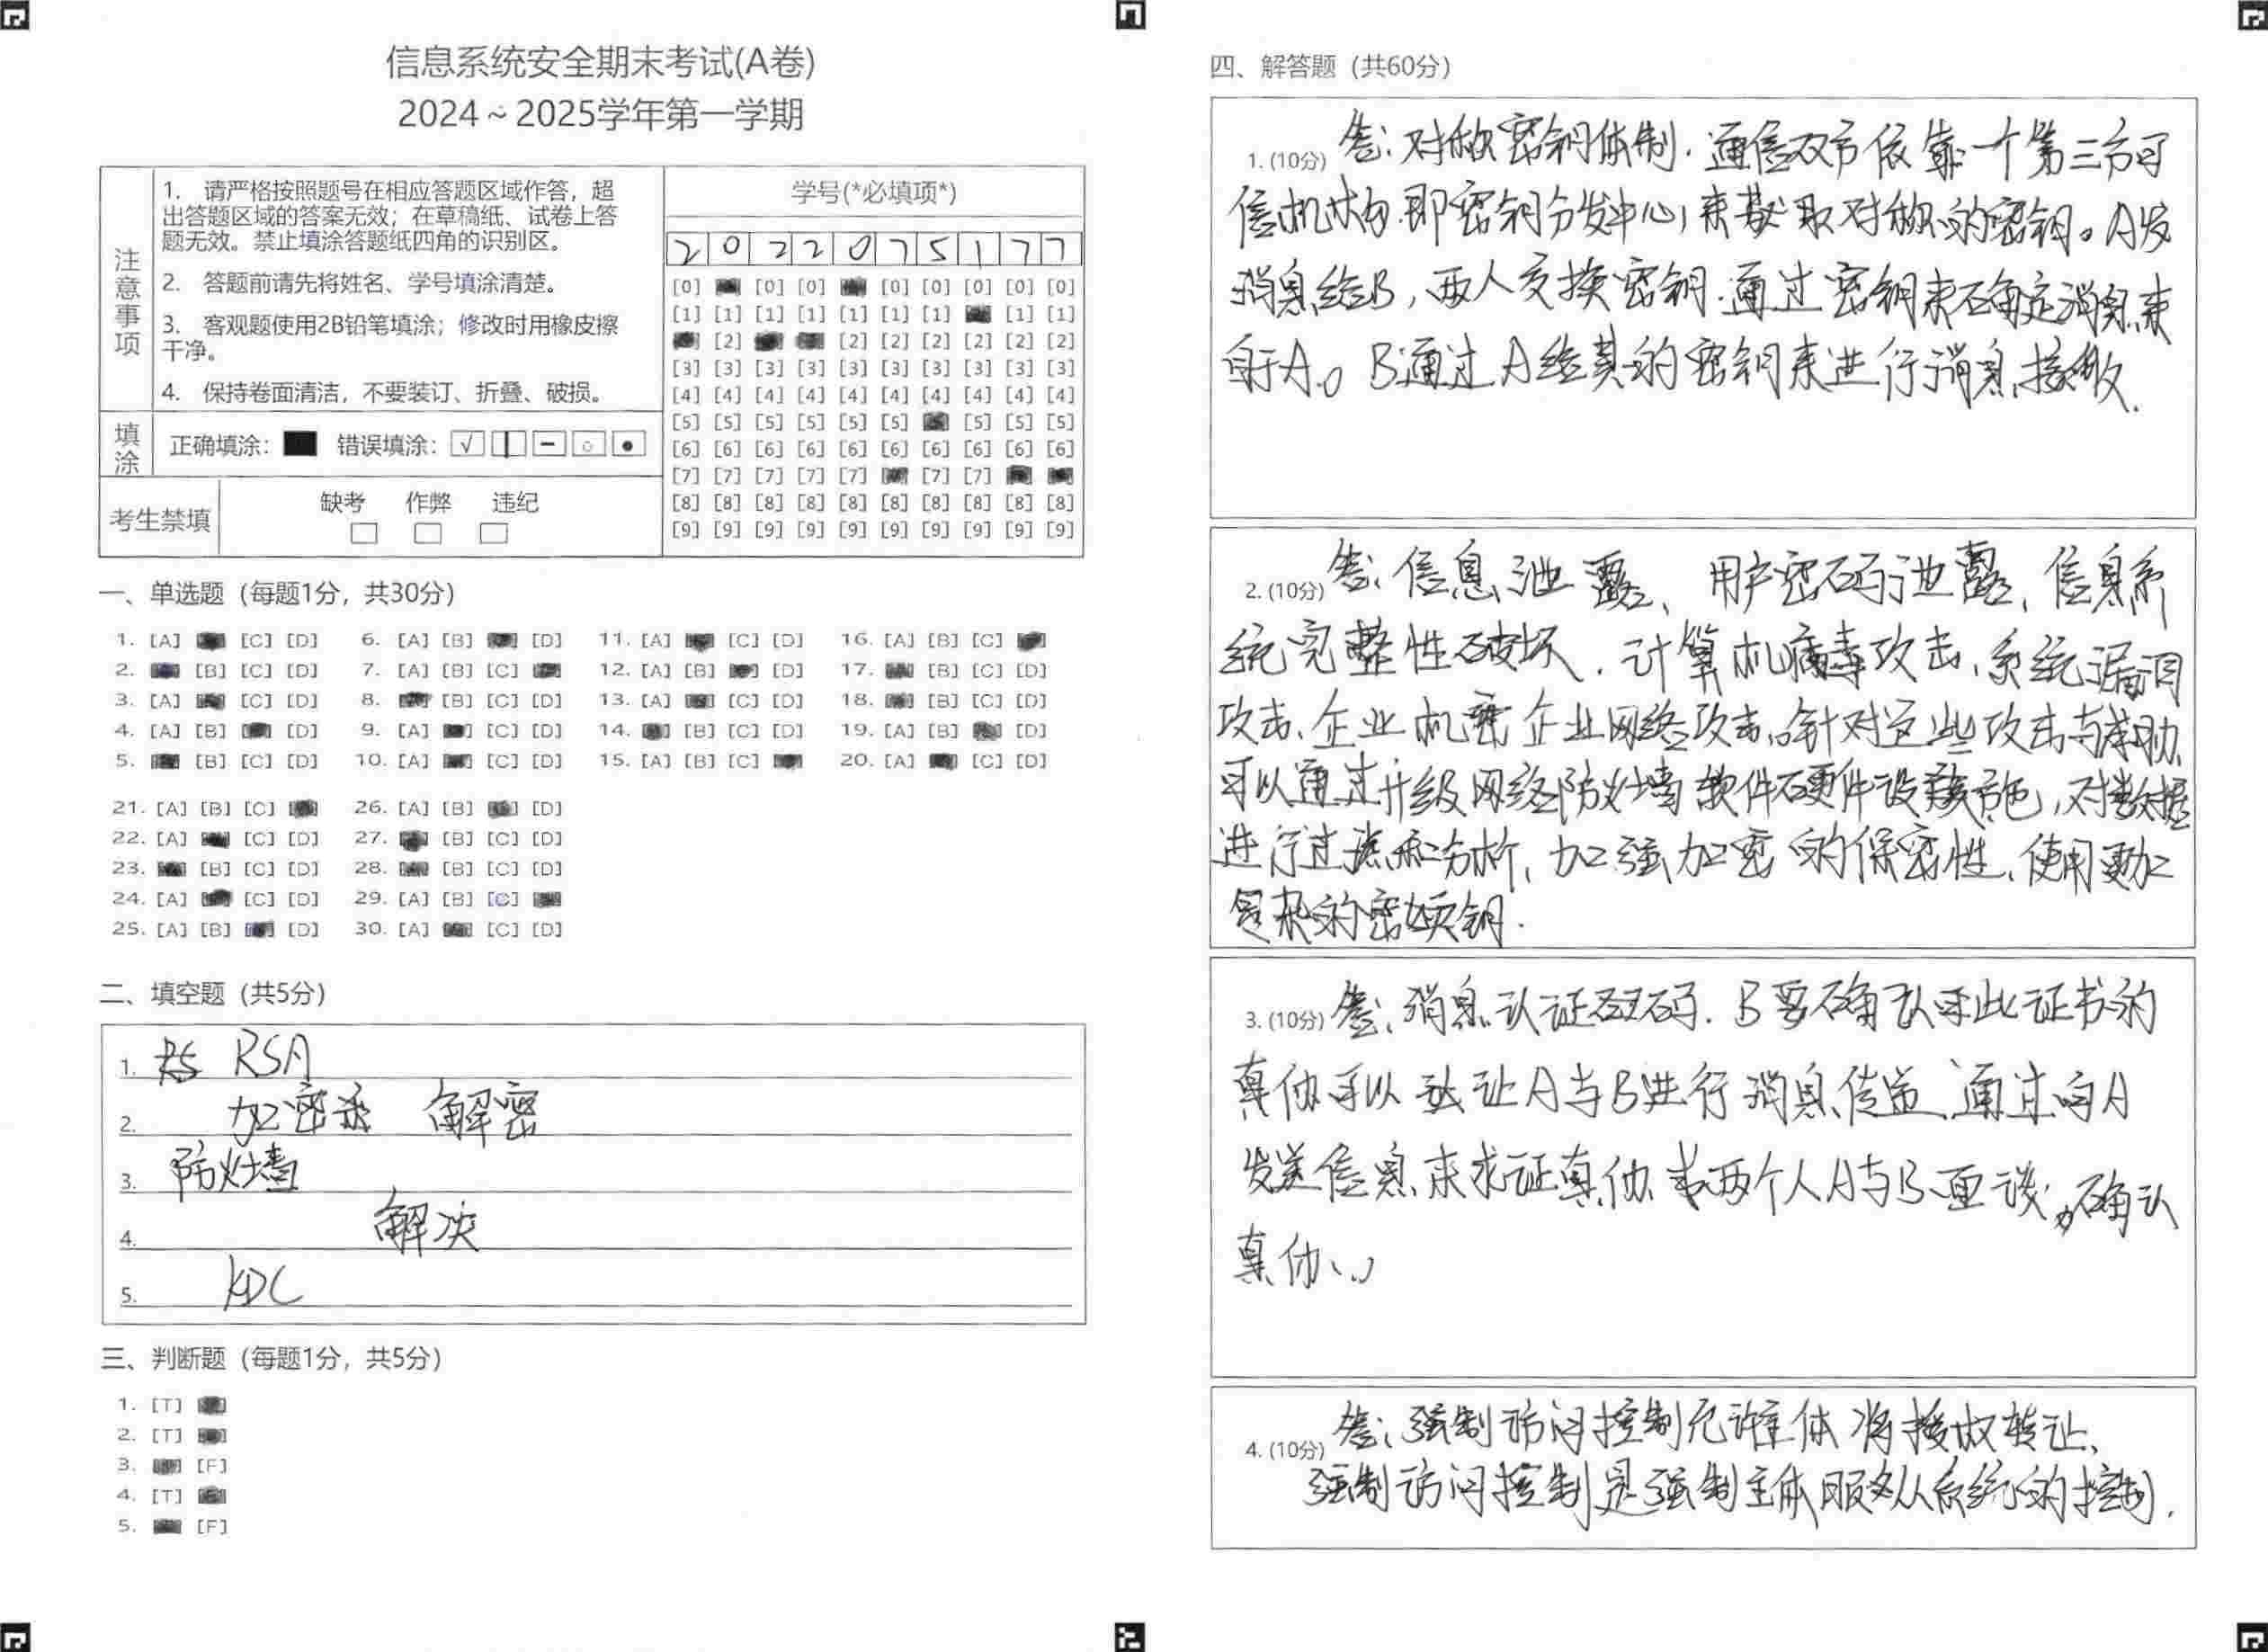 信息系统安全期末考试(A卷)
2024～2025学年第一学期
注意事项
1. 请严格按照题号在相应答题区域作答，超
出答题区域的答案无效；在草稿纸、试卷上答
题无效。禁止填涂答题纸四角的识别区。
2. 答题前请先将姓名、学号填涂清楚。
3. 客观题使用2B铅笔填涂；修改时用橡皮擦
干净。
4. 保持卷面清洁，不要装订、折叠、破损。
填涂
正确填涂： 错误填涂：
考生禁填
缺考 作弊 违纪
学号(*必填项*)
2 0 2 2 0 7 5 1 7 7
[0] [0] [0] [0] [0] [0] [0] [0]
[1] [1] [1] [1] [1] [1] [1] [1] [1]
[2] [2] [2] [2] [2] [2] [2]
[3] [3] [3] [3] [3] [3] [3] [3] [3] [3]
[4] [4] [4] [4] [4] [4] [4] [4] [4] [4]
[5] [5] [5] [5] [5] [5] [5] [5] [5]
[6] [6] [6] [6] [6] [6] [6] [6] [6] [6]
[7] [7] [7] [7] [7] [7] [7]
[8] [8] [8] [8] [8] [8] [8] [8] [8] [8]
[9] [9] [9] [9] [9] [9] [9] [9] [9] [9]
一、单选题（每题1分，共30分）
1. [A] [C] [D] 6. [A] [B] [D] 11. [A] [C] [D] 16. [A] [B] [C]
2. [B] [C] [D] 7. [A] [B] [C] 12. [A] [B] [D] 17. [B] [C] [D]
3. [A] [C] [D] 8. [B] [C] [D] 13. [A] [C] [D] 18. [B] [C] [D]
4. [A] [B] [D] 9. [A] [C] [D] 14. [B] [C] [D] 19. [A] [B] [D]
5. [B] [C] [D] 10. [A] [C] [D] 15. [A] [B] [C] 20. [A] [C] [D]
21. [A] [B] [C] 26. [A] [B] [D]
22. [A] [C] [D] 27. [B] [C] [D]
23. [B] [C] [D] 28. [B] [C] [D]
24. [A] [C] [D] 29. [A] [B] [C]
25. [A] [B] [D] 30. [A] [C] [D]
二、填空题（共5分）
1. RSA
2. 加密 解密
3. 防火墙
4. 解决
5. KDC
三、判断题（每题1分，共5分）
1. [T]
2. [T]
3. [F]
4. [T]
5. [F]
四、解答题（共60分）
1. (10分) 答：对称密钥体制．通信双方依靠一个第三方可
信机构．即密钥分发中心，来获取对称的密钥。A发
消息给B，两人交换密钥．通过密钥来确定消息来
自于A。B通过A给其的密钥来进行消息接收．
2. (10分) 答：信息泄露、用户密码泄露、信息系
统完整性破坏．计算机病毒攻击、系统漏洞
攻击、企业机密企业网络攻击。针对这些攻击与
可以通过升级网络防火墙软件硬件设施，对数据
进行过滤和分析，加强加密的保密性、使用更加
复杂的密钥．
3. (10分) 答：消息认证码．B要确认此证书的
真伪可以让A与B进行消息传递、通过向A
发送信息来求证真伪 两个人A与B面谈，确认
真伪、
4. (10分) 答：强制访问控制允许主体将授权转让、
强制访问控制是强制主体服从系统的控制．